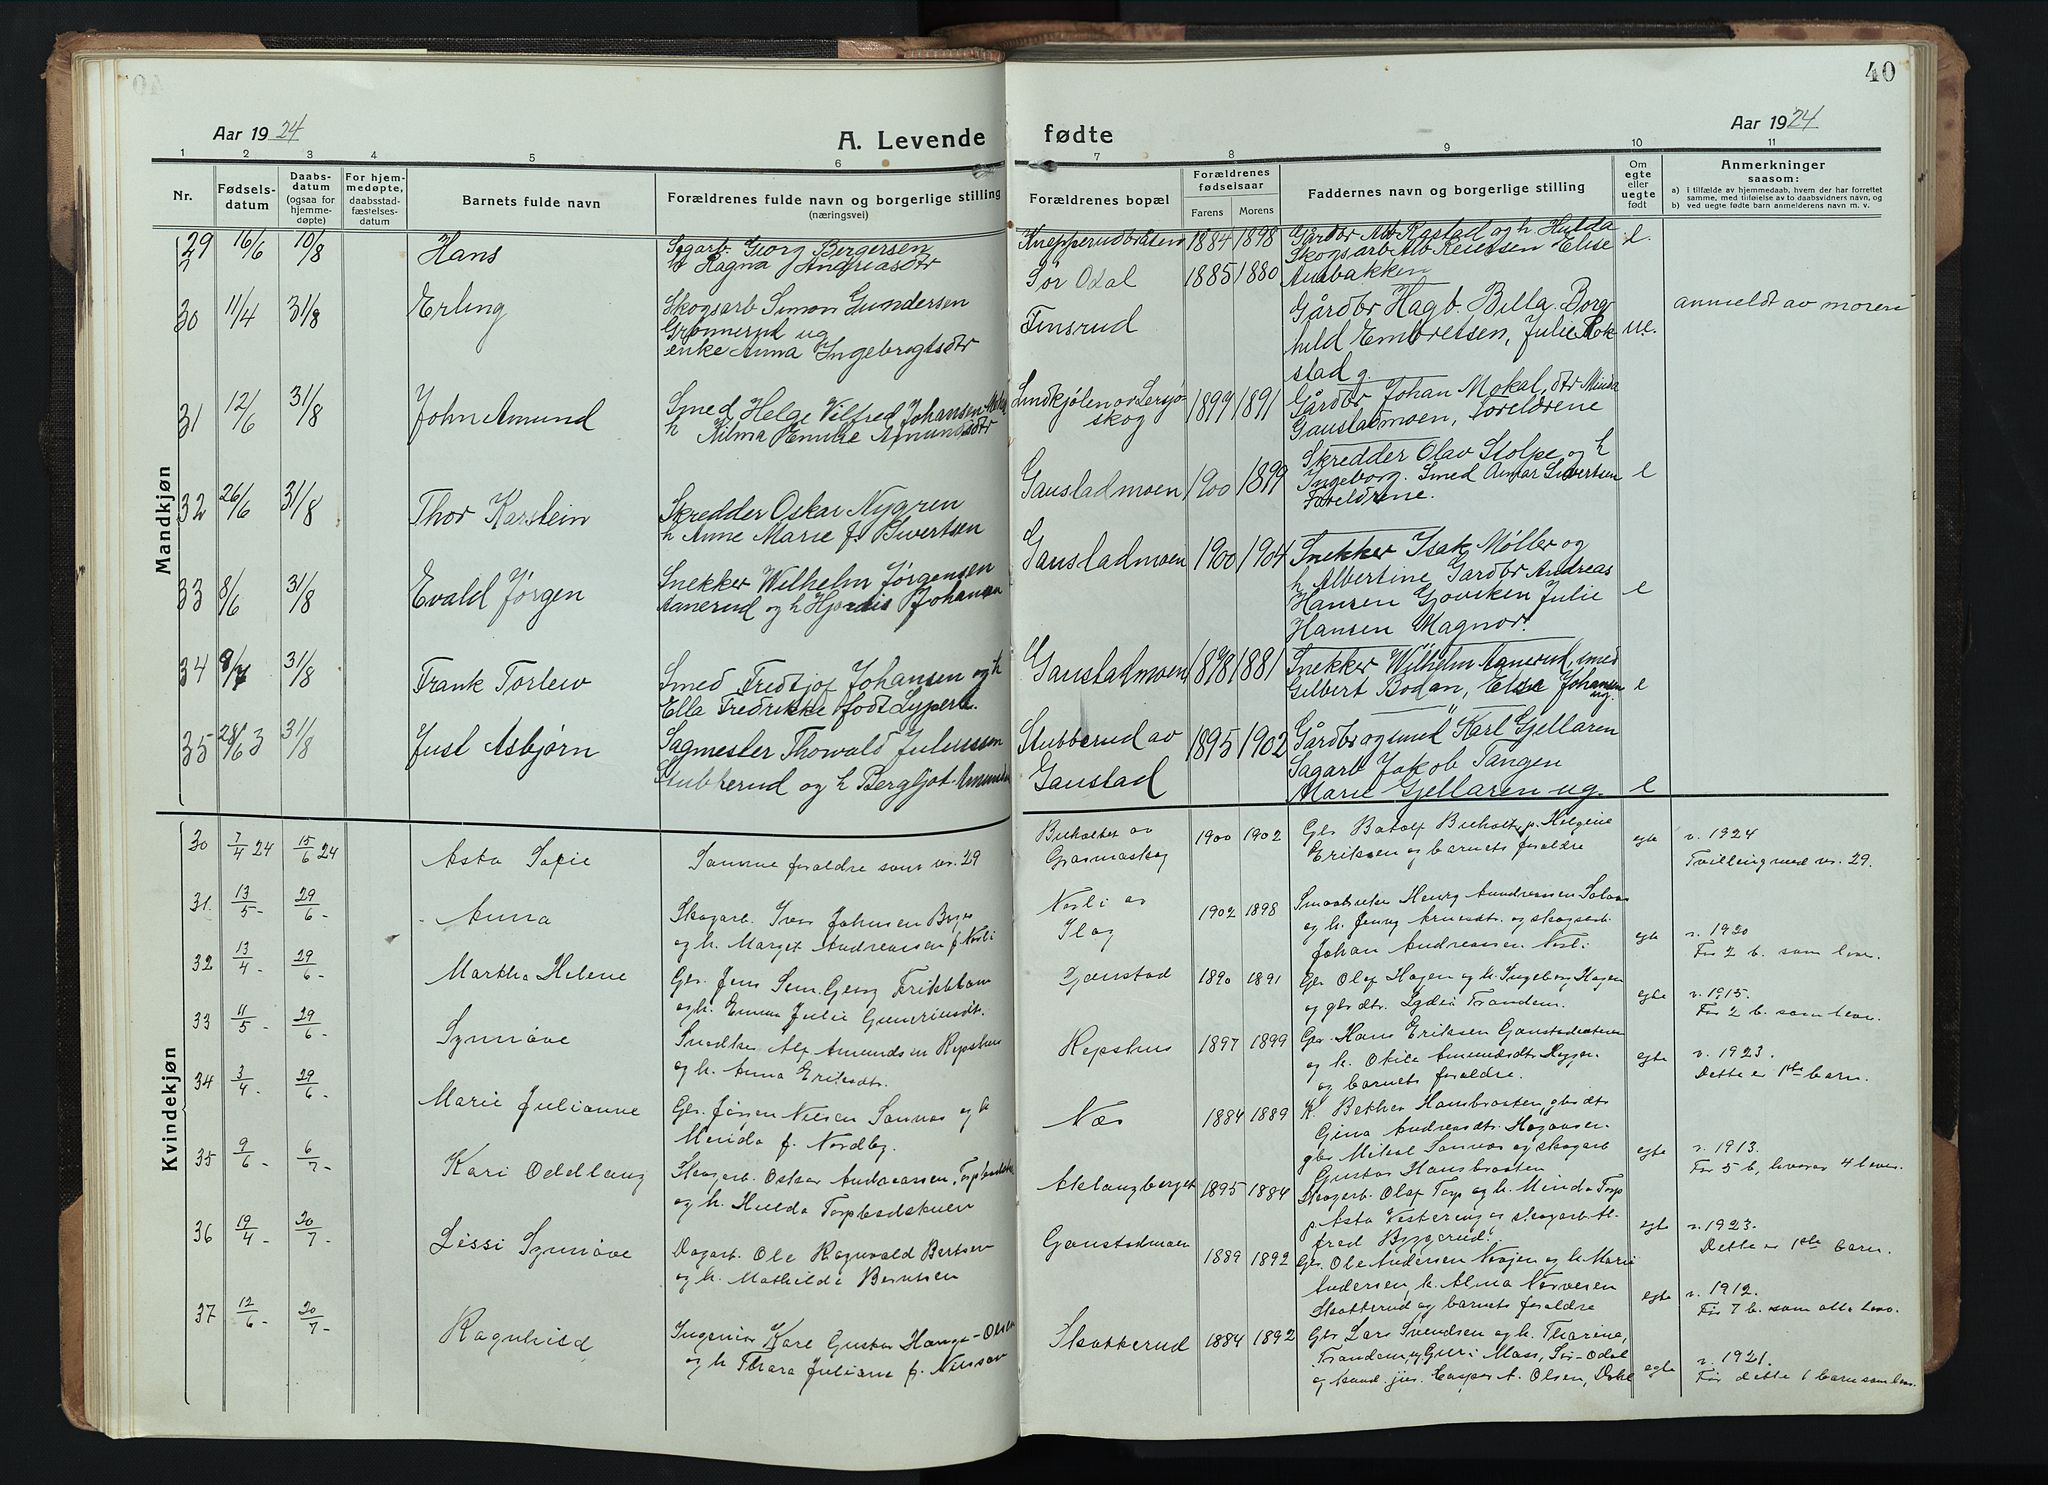 40
Aar 1924
A. Levende
fødte
Aar 1924
1 2 3 4 5 6 7 8 9 10 11
Nr.
Fødsels-
datum
Daabs-
datum
(ogsaa for
hjemme-
døpte)
For hjem-
medøpte,
daabsstad-
fæstelses-
datum
Barnets fulde navn
Forældrenes fulde navn og borgerlige stilling
(næringsvei)
Forældrenes bopæl
Forældrenes
fødselsaar
Farens Morens
Faddernes navn og borgerlige stilling
Om
egte
eller
uegte
født
Anmerkninger
saasom:
a) i tilfælde av hjemmedaab, hvem der har forrettet
samme, med tilføielse av to daabsvidners navn, og
b) ved uegte født barn anmelderens navn m. v.
Mandkjøn
29 16/6 10/8 Hans
Sagarb Georg Bergersen
h Ragna Andreasdtr
Knepperudbråten 1884 1898
Gårdbr Alb Rastad og h Hulda
Skogsarb Alb Reiersen Elise
Ausbakken
e.
30 11/4 31/8 Erling
Skogsarb Simon Gundersen
Grønnerud ug
enke Anna Ingebregtsdtr
Sør Odal 1885 1880
Finsrud
Gårdbr Hagb. Billa, Borg
hild Embretsen, Julie Rok
stad g.
ue.
anmeldt av moren
31 12/6 31/8 John Amund
Smed Helge Vilfred Johansen
h Hilma Amundsdtr
skog 1899 1891
Gårdbr Johan Mokal, dtr Minda
Gaustadmoen, foreldrene
32 26/6 31/8 Thor Karstein
Skredder Oskar Nygren
h Anne Marie f. Sivertsen
Gaustadmoen 1900 1899
Skredder Olav Stolpe og h
Ingeborg. Smed Anmar Sivertsen
Foreldrene.
e
33 8/6 31/8 Evald Jørgen
Snekker Wilhelm Jørgensen
Aanerud og h Hjordis Johansen
Gaustadmoen 1900 1904
Snekker Isak Møller og
h Albertine Gårdbr Andreas
Hansen Gjovsken Julie
Hansen Magnor.
e
34 31/8 Frank Torleiv
Smed Fredtjof Johansen og h
Ella Fredrikke født Lyper
Gaustadmoen 1898 1881
Snekker Wilhelm Aanerud, smed
Gilbert Bodan, Else Johansen
ug.
e
35 28/6 3 31/8 Just Asbjørn
Sagmester Thorvald Juliussen
Stubberud og h Bergljot
Stubberud av
Gaustad
1895 1902
Gårdbr og smed Karl Gjellaren
Sagarb Jakob Tangen
Marie Gjellaren ug.
e
Kvindekjøn
30 7/4 24 15/6 24 Asta Sofie
Samme foraldre som nr. 29
av
1900 1902
Eriksen og barnets foraldre
egte
v. 1924
Tvilling med nr. 29.
31. 13/5 - 29/6 - Anna
Skogarb. Iver Johnsen
og h. Marget Andreassen f. Norli
Norli av
1902 1898
og h. Jenny og skogsarb.
Johan Andreassen Norli
egte
v. 1920
Før 2 b. som lever.
32 13/4 - 29/6 - Martha Helene
Gbr. Jens Sem. Georg
og h. Emma Julie
Gaustad 1890 1891
Gbr Olaf Hagen og h. Ingeborg Hagen
og gbr dtr. Trandem.
egte
v. 1915.
Før 2 b. som lever.
33 11/5 - 29/6 - Synnøve
Snedker Alf Amundsen Repshus
og h. Anna Eriksdt.
Repshus 1897 1899
Gbr. Hans Eriksen
og h. Otilie
og barnets foraldre.
egte
v. 1923.
Dette er 1ste barn.
34 3/4 - 29/6 - Marie Julianne
Gbr. Jørgen Nilsen Sannas og h
Merida f. Nordby.
Næs 1884 1889
K. Bethea Hansbraaten, gbr dt
Gina Andreasdt.
gbr Mikal Sannas og skogarb
Gustav Hansbraaten
egte
v. 1913.
Før 5 b, hvorav 4 lever.
35 9/6 - 6/7 - Kari Oddlaug
Skogarb. Oskar Andreassen,
og h. Hulda
Aklangberget 1895 1884
Skogarb. Olaf Torp og h. Minda Torp
p. Asta og skogarb. Al
fred
egte
v. 1923.
Dette er 1ste barn.
36 19/4 - 20/7 - Lissi Synnøve
Dagarb. Ole Ragnvald Berntsen
og h. Mathilde Berntsen
Gaustadmoen 1889 1892
Gbr. Ole Andersen og h. Marie
Andersen, h. Alma
Skotterud og barnets foraldre
egte
v. 1912.
Før 7 b. som alle lever.
37 12/6 - 20/7 - Ragnhild
Ingeniør Kare Gustav Hauge-Olsen
og h Thora Juliane f. Nilssen
Skotterud 1884 1892
Gbr Lars Svendsen og h. Tharine,
Trandem, Guri Moss, Sør-Odal
og kand. jur. Casper A. Olsen,
egte
v. 1921.
Før dette 1 barn som lever.